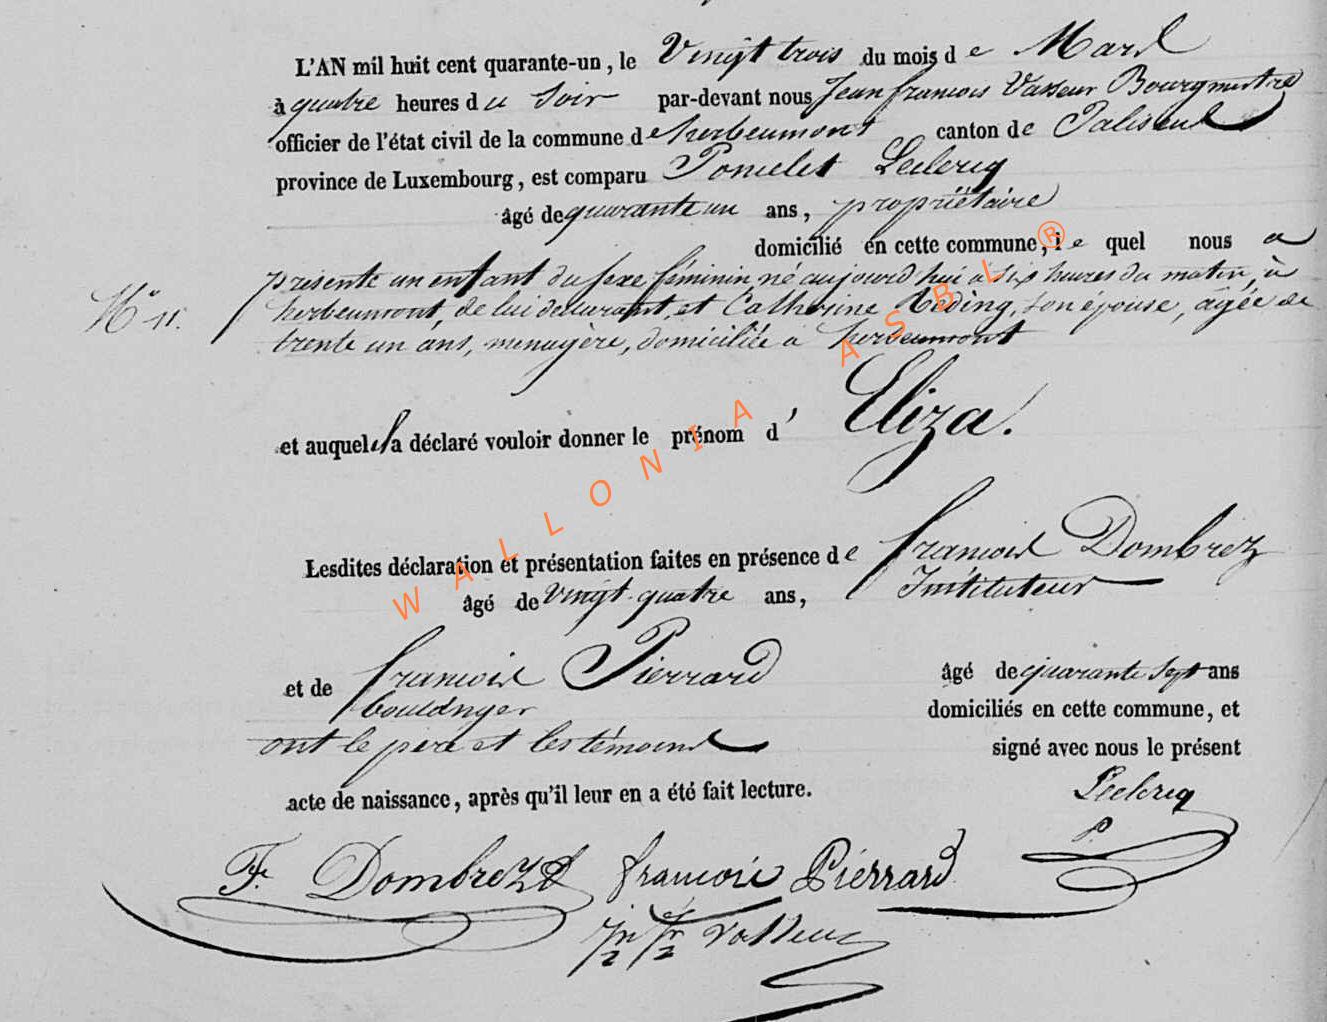 L'AN mil huit cent quarante-un, le Vingt trois du mois de Mars
à quatre heures du Soir par-devant nous Jean françois Vasseur Bourgmestre
officier de l'état civil de la commune de herbeumont canton de Paliseul
province de Luxembourg, est comparu Poncelet Leclercq
âgé de quarante un ans, propriétaire
domicilié en cette commune, le quel nous a
présenté un enfant du sexe féminin, né aujourd'hui à six heures du matin, à
N° 11. herbeumont, de lui déclarant, et Catherine Reding, son épouse, âgée de
trente un ans, menagère, domiciliée à herbeumont
et auquel il a déclaré vouloir donner le prénom d' Eliza.
Lesdites déclaration et présentation faites en présence de françois Dombrez
âgé de vingt-quatre ans, Instituteur
et de françois Pierrard âgé de quarante sept ans
boulanger domiciliés en cette commune, et
ont le père et les témoins signé avec nous le présent
acte de naissance, après qu'il leur en a été fait lecture. Leclercq
P.
F. Dombrez françois Pierrard
Jn fr Vasseur
WALLONIA ASBL ®